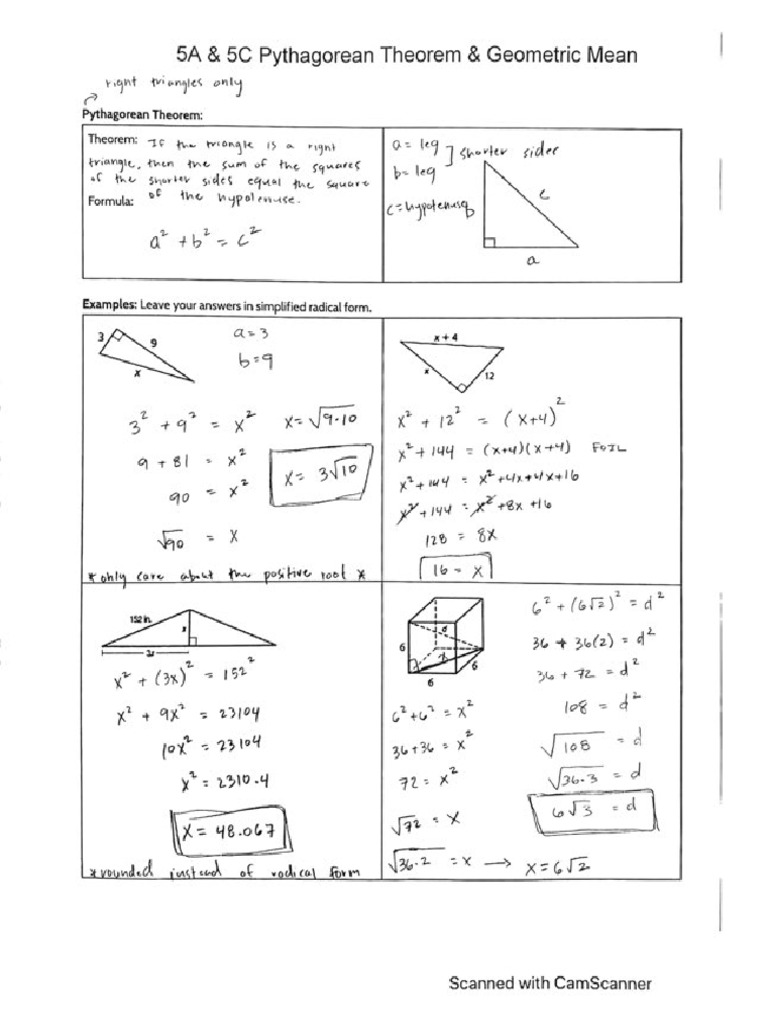 5A & 5C Pythagorean Theorem & Geometric Mean
right triangles only
Pythagorean Theorem:
Theorem: If the triangle is a right
triangle, then the sum of the squares
of the shorter sides equal the square
of the hypotenuse.
Formula:
a² + b² = c²
a = leg
b = leg
] shorter sides
c = hypotenuse
c
a
Examples: Leave your answers in simplified radical form.
3
9
x
a = 3
b = 9
3² + 9² = x²
9 + 81 = x²
90 = x²
√90 = x
x = √9·10
x = 3√10
* only care about the positive root *
x + 4
x
12
x² + 12² = (x+4)²
x² + 144 = (x+4)(x+4) FOIL
x² + 144 = x² + 4x + 4x + 16
x² + 144 = x² + 8x + 16
128 = 8x
16 = x
152 in.
x
x² + (3x)² = 152²
x² + 9x² = 23104
10x² = 23104
x² = 2310.4
x = 48.067
* rounded instead of radical form
6
d
x
6
6
6² + 6² = x²
36 + 36 = x²
72 = x²
√72 = x
√36·2 = x → x = 6√2
6² + (6√2)² = d²
36 + 36(2) = d²
36 + 72 = d²
108 = d²
√108 = d
√36·3 = d
6√3 = d
Scanned with CamScanner